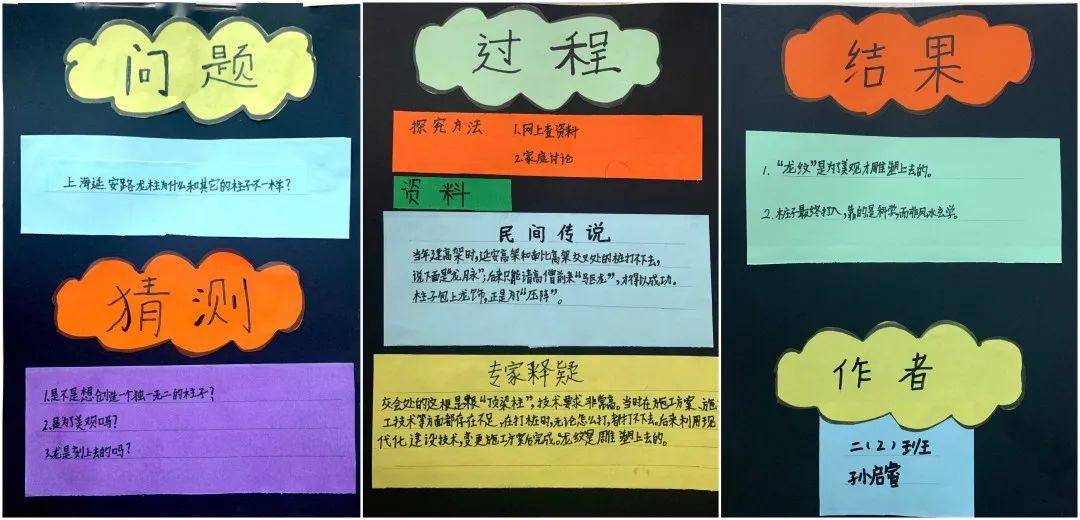 问题
上海延安路龙柱为什么和其它的柱子不一样?
猜测
1.是不是想创造一个独一无二的柱子?
2.是为了美观吗?
3.龙是刻上去的吗?
过程
探究方法 1.网上查资料
2.家庭讨论
资料
民间传说
当年建高架时,延安高架和南北高架交叉处的桩打不下去,
说下面是“龙脉”;后来只能请高僧前来“驱龙”,才得以成功。
柱子包上龙饰,正是为了“压阵”。
专家释疑
交会处的这根是根“顶梁柱”,技术要求非常高。当时在施工方案、施
工技术等方面都存在不足,在打桩时,无论怎么打,都打不下去。后来利用现
代化建设技术,变更施工方案后完成。龙纹是雕塑上去的。
结果
1.“龙纹”是为了美观才雕塑上去的。
2.柱子最终打入,靠的是科学,而非风水玄学。
作者
二(2)班
孙启睿